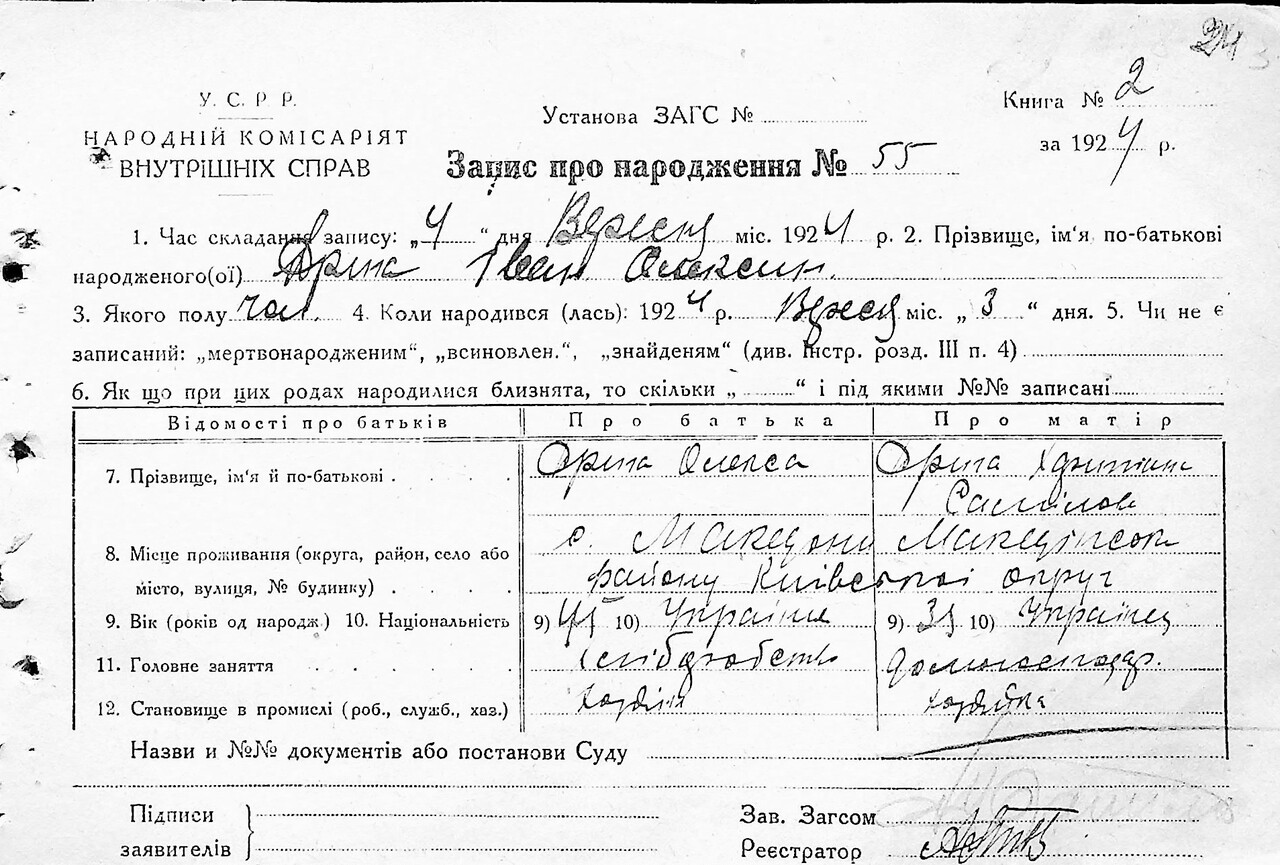 У. С. Р. Р.
НАРОДНІЙ КОМІСАРІЯТ
ВНУТРІШНІХ СПРАВ
Установа ЗАГС №
Книга № 2
за 1924 р.
Запис про народження № 55
1. Час складання запису: „4“ дня Вересня міс. 1924 р. 2. Прізвище, ім'я по-батькові
народженого(ої) Іван Олексин.
3. Якого полу чол. 4. Коли народився (лась): 1924 р. Вересня міс. „3“ дня. 5. Чи не є
записаний: „мертвонародженим“, „всиновлен.“, „знайденям“ (див. Інстр. розд. III п. 4)
6. Як що при цих родах народилися близнята, то скільки „ “ і під якими №№ записані
Відомості про батьків Про батька Про матір
7. Прізвище, ім'я й по-батькові Олекса
8. Місце проживання (округа, район, село або с. Македони
місто, вулиця, № будинку) району Київської округ
9. Вік (років од народж.) 10. Національність 9) 10) Українець 9) 10) Українец
11. Головне заняття хліборобство домогосподар.
12. Становище в промислі (роб., служб., хаз.) хазяїн хазяйка
Назви и №№ документів або постанови Суду
Підписи
заявителів
Зав. Загсом
Реєстратор